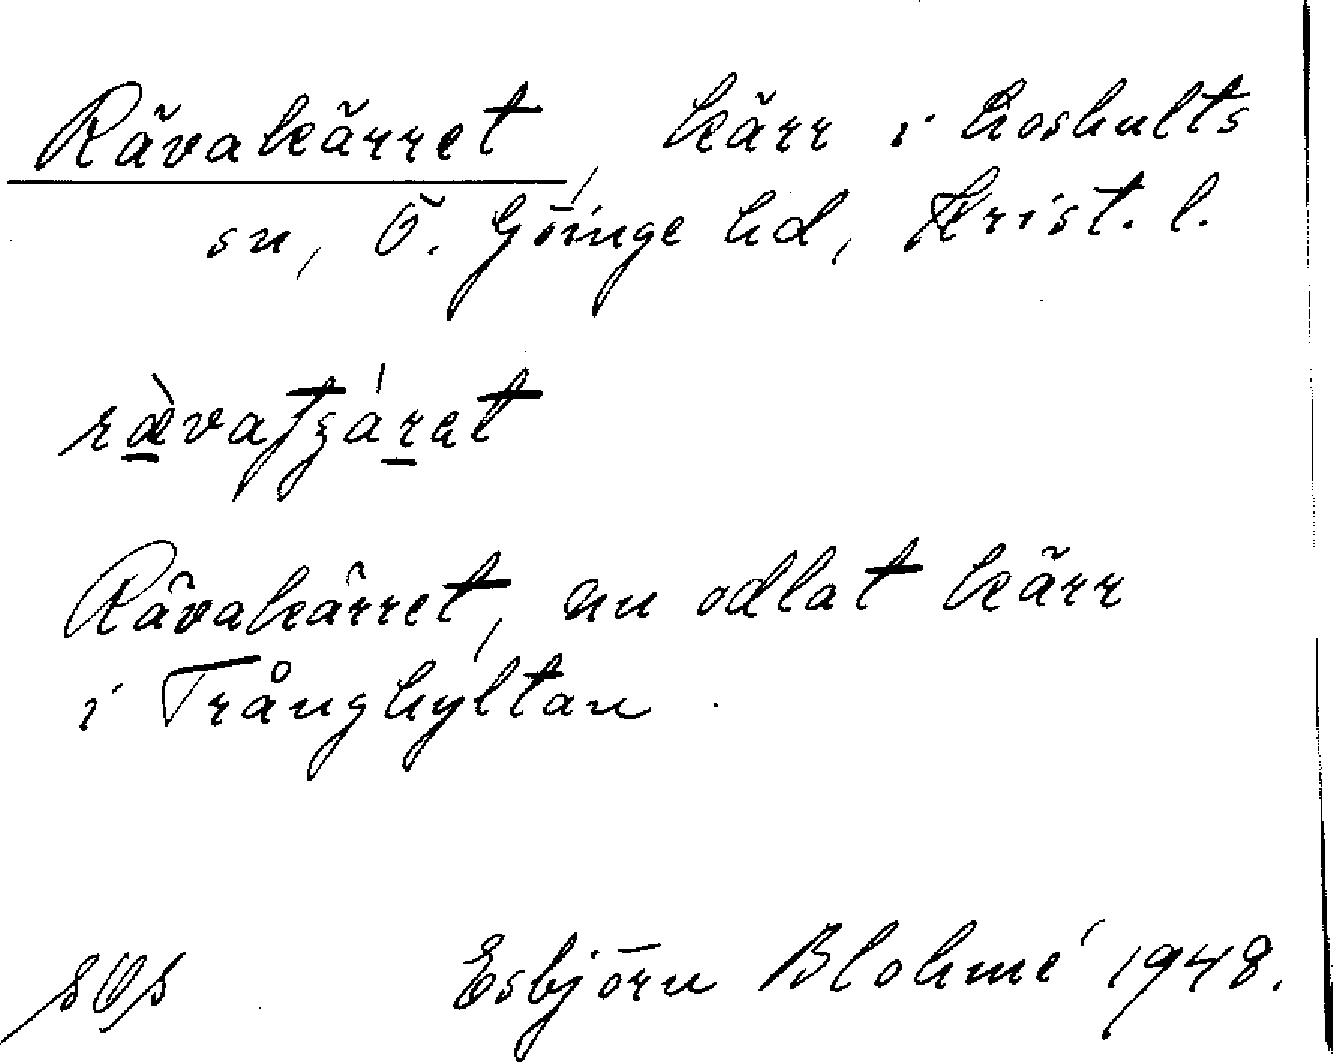 Rävakärret, kärr i Loshults
sn, Ö. Göinge hd, Krist. l.
Rävakärret, nu odlat kärr
i Trånghyltan
Esbjörn Blohmé 1948.